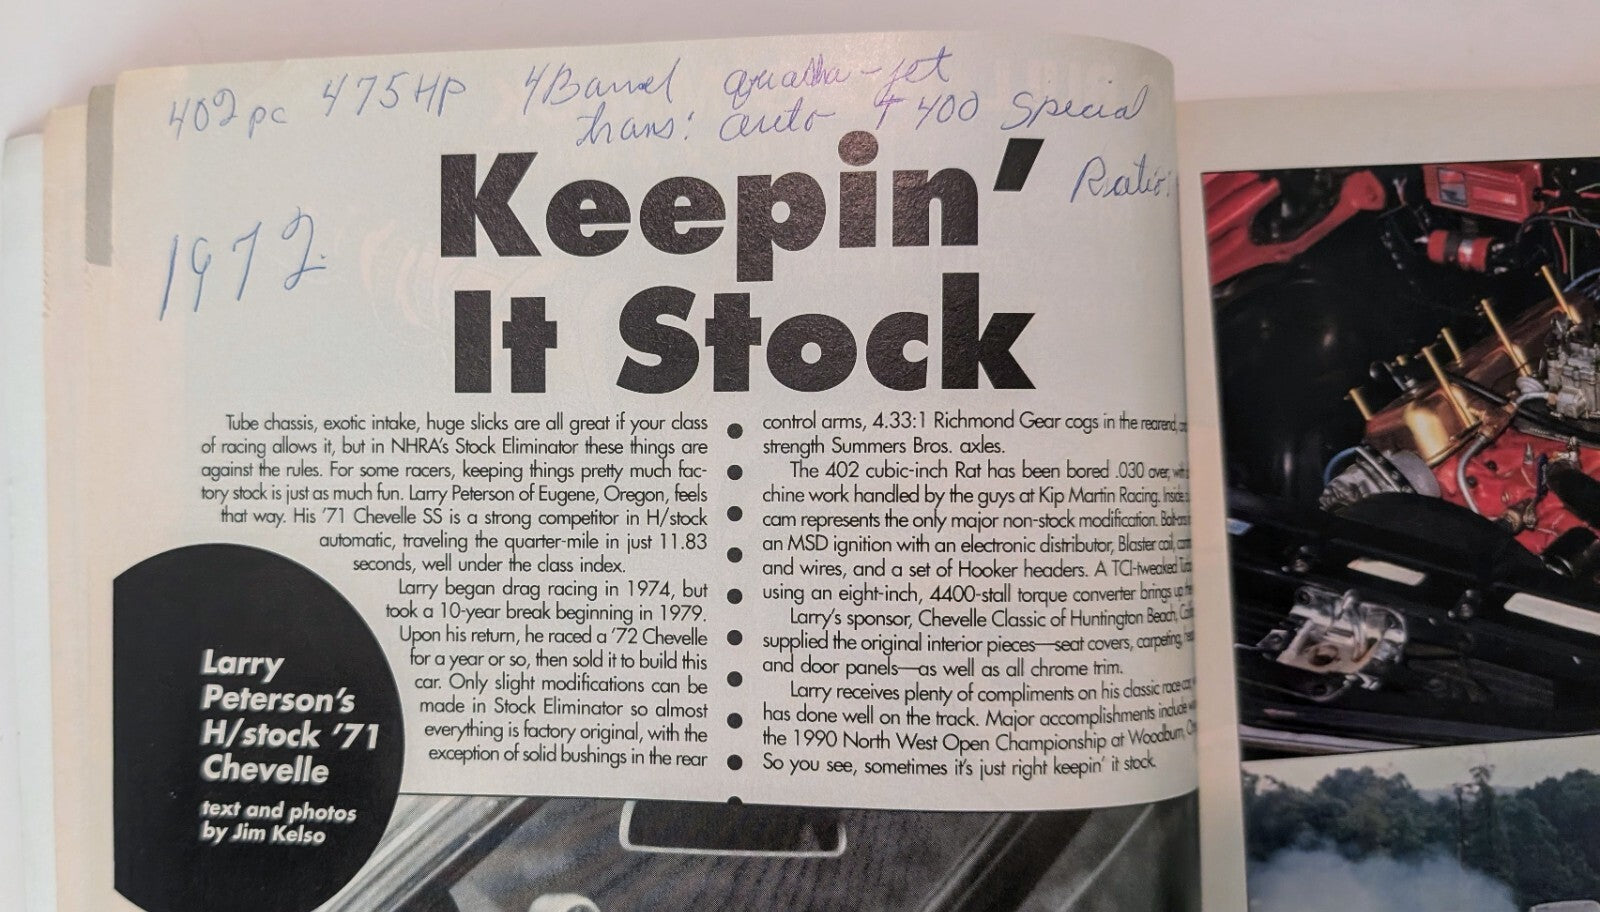 402 pc 475HP 4Barrel quadra-jet
trans: auto T400 Special
Ratio:
1972
Keepin'
It Stock
Tube chassis, exotic intake, huge slicks are all great if your class
of racing allows it, but in NHRA's Stock Eliminator these things are
against the rules. For some racers, keeping things pretty much fac-
tory stock is just as much fun. Larry Peterson of Eugene, Oregon, feels
that way. His '71 Chevelle SS is a strong competitor in H/stock
automatic, traveling the quarter-mile in just 11.83
seconds, well under the class index.
Larry began drag racing in 1974, but
took a 10-year break beginning in 1979.
Upon his return, he raced a '72 Chevelle
for a year or so, then sold it to build this
car. Only slight modifications can be
made in Stock Eliminator so almost
everything is factory original, with the
exception of solid bushings in the rear
control arms, 4.33:1 Richmond Gear cogs in the rearend,
strength Summers Bros. axles.
The 402 cubic-inch Rat has been bored .030 over,
chine work handled by the guys at Kip Martin Racing. Inside
cam represents the only major non-stock modification.
an MSD ignition with an electronic distributor, Blaster coil,
and wires, and a set of Hooker headers. A TCI-tweaked
using an eight-inch, 4400-stall torque converter brings up
Larry's sponsor, Chevelle Classic of Huntington Beach,
supplied the original interior pieces—seat covers, carpeting,
and door panels—as well as all chrome trim.
Larry receives plenty of compliments on his classic race car,
has done well on the track. Major accomplishments include
the 1990 North West Open Championship at Woodburn,
So you see, sometimes it's just right keepin' it stock.
Larry
Peterson's
H/stock '71
Chevelle
text and photos
by Jim Kelso